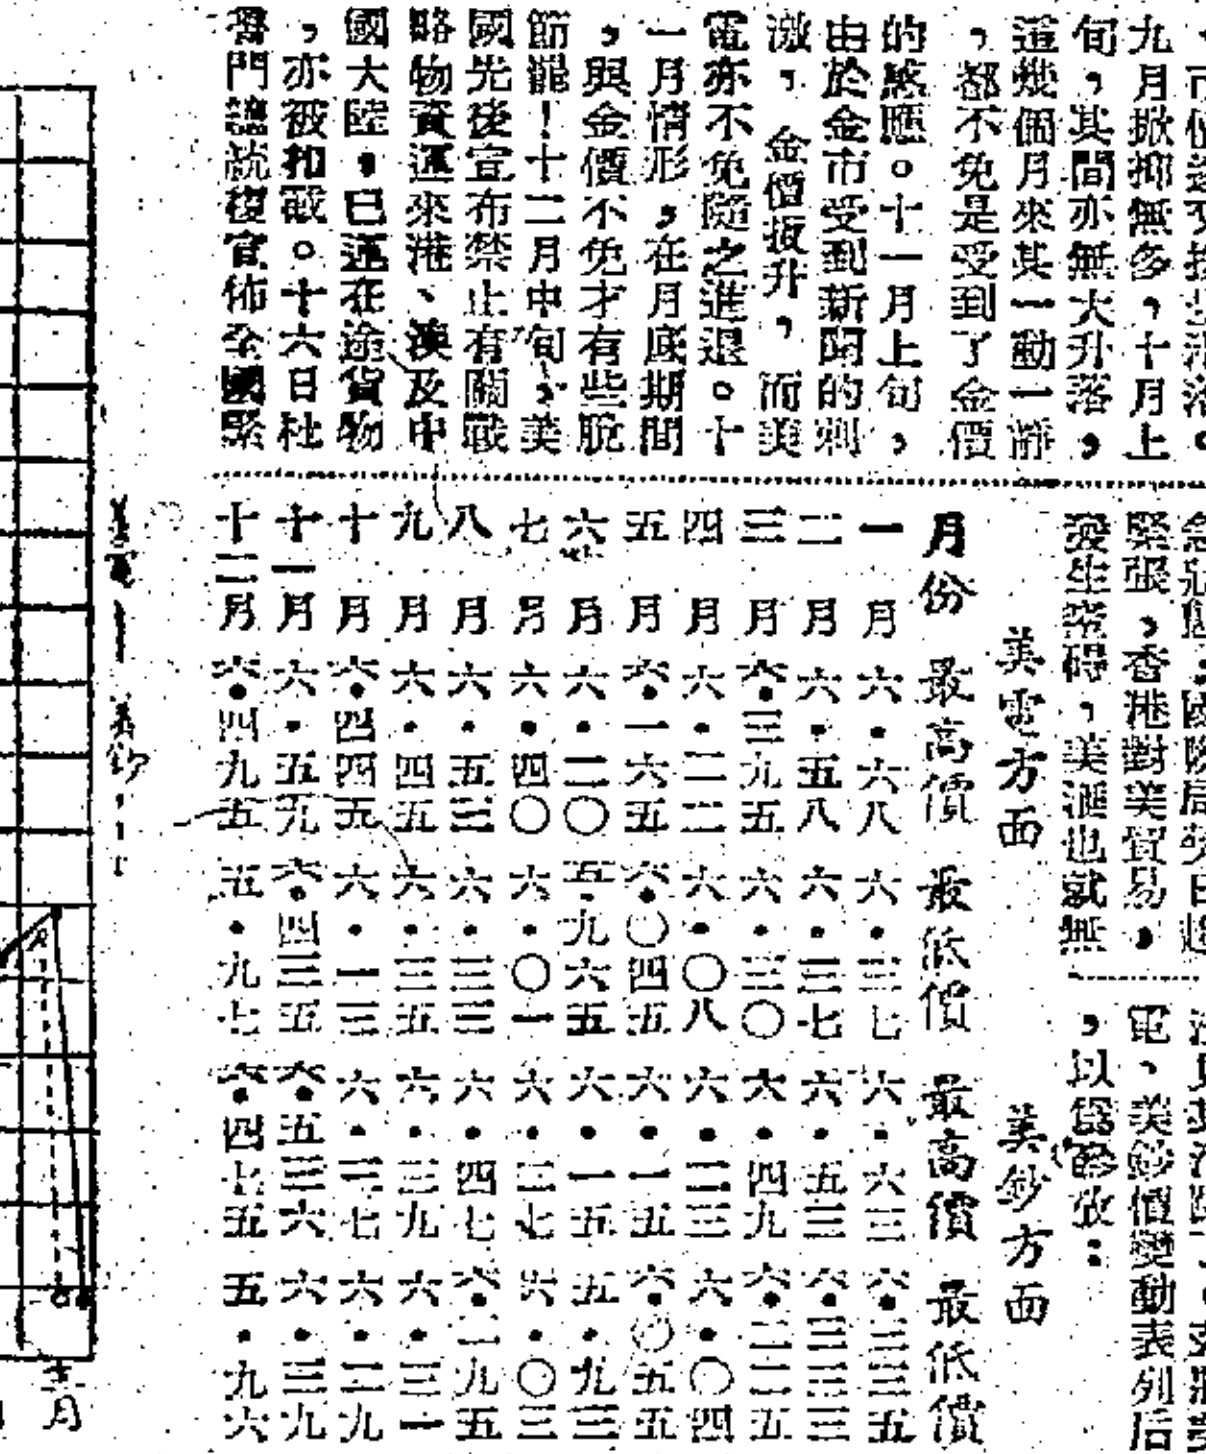 九月掀抑無多，十月上
旬，其間亦無大升落，
這幾個月來其一動一靜
，都不免是受到了金價
的感應。十一月上旬，
由於金市受到新聞的刺
激，金價扳升，而美
電亦不免隨之進退。十
一月情形，在月底期間
，與金價不免才有些脫
節罷！十二月中旬，美
國先後宣布禁止有關戰
略物資運來港、澳及中
國大陸，已運在途貨物
，亦被扣截。十六日杜
魯門總統復宣佈全國緊
急狀態，國際局勢日趨
緊張，香港對美貿易，
發生窒碍，美滙也就無
電、美鈔價變動表列后
，以爲參攷：
美電方面 美鈔方面
月份 最高價 最低價 最高價 最低價
一月 六・六八 六・三七 六・六三 六・三三五
二月 六・五八 六・三七 六・五三 六・三三三
三月 六・三九五 六・三〇 六・四九 六・二二五
四月 六・二二 六・〇八 六・二三 六・〇四
五月 六・一六五 六・〇四五 六・一五 六・〇五五
六月 六・二〇 五・九六五 六・一五 五・九三
七月 六・四〇 六・〇一 六・二七 六・〇三
八月 六・五三 六・三三 六・四七 六・二九五
九月 六・四五 六・三五 六・三九 六・三一
十月 六・四四五 六・一三 六・二七 六・二九
十一月 六・五九 六・四三五 六・五三六 六・三九
十二月 六・四九五 五・九七 六・四七五 五・九六
美電 美鈔
十二月